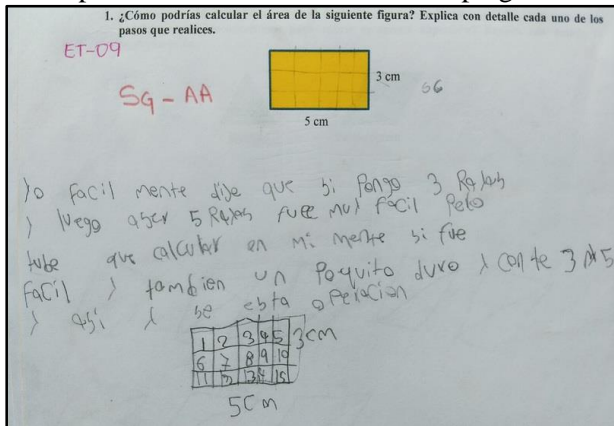 1. ¿Cómo podrías calcular el área de la siguiente figura? Explica con detalle cada uno de los
pasos que realices.
ET-09
SG - AA
3 cm
5 cm
Yo facil mente dije que si Pongo 3 Rallas
y luego aser 5 Rallas fuee muy facil Pero
tube que calcular en mi mente si fue
facil y tambien un Poquito duro y conte 3
y asi y se esta operacion
1 2 3 4 5 3cm
6 7 8 9 10
11 12 13 14 15
5cm